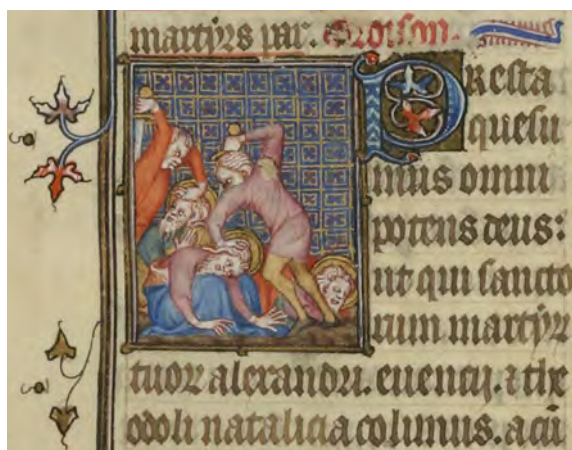 martyrs par. Oroison.
Presta
quesu
mus omni
potens deus:
ut qui sancto
rum martyr
tuor alexandri. euencij. & the
odoli natalicia colimus. a cū